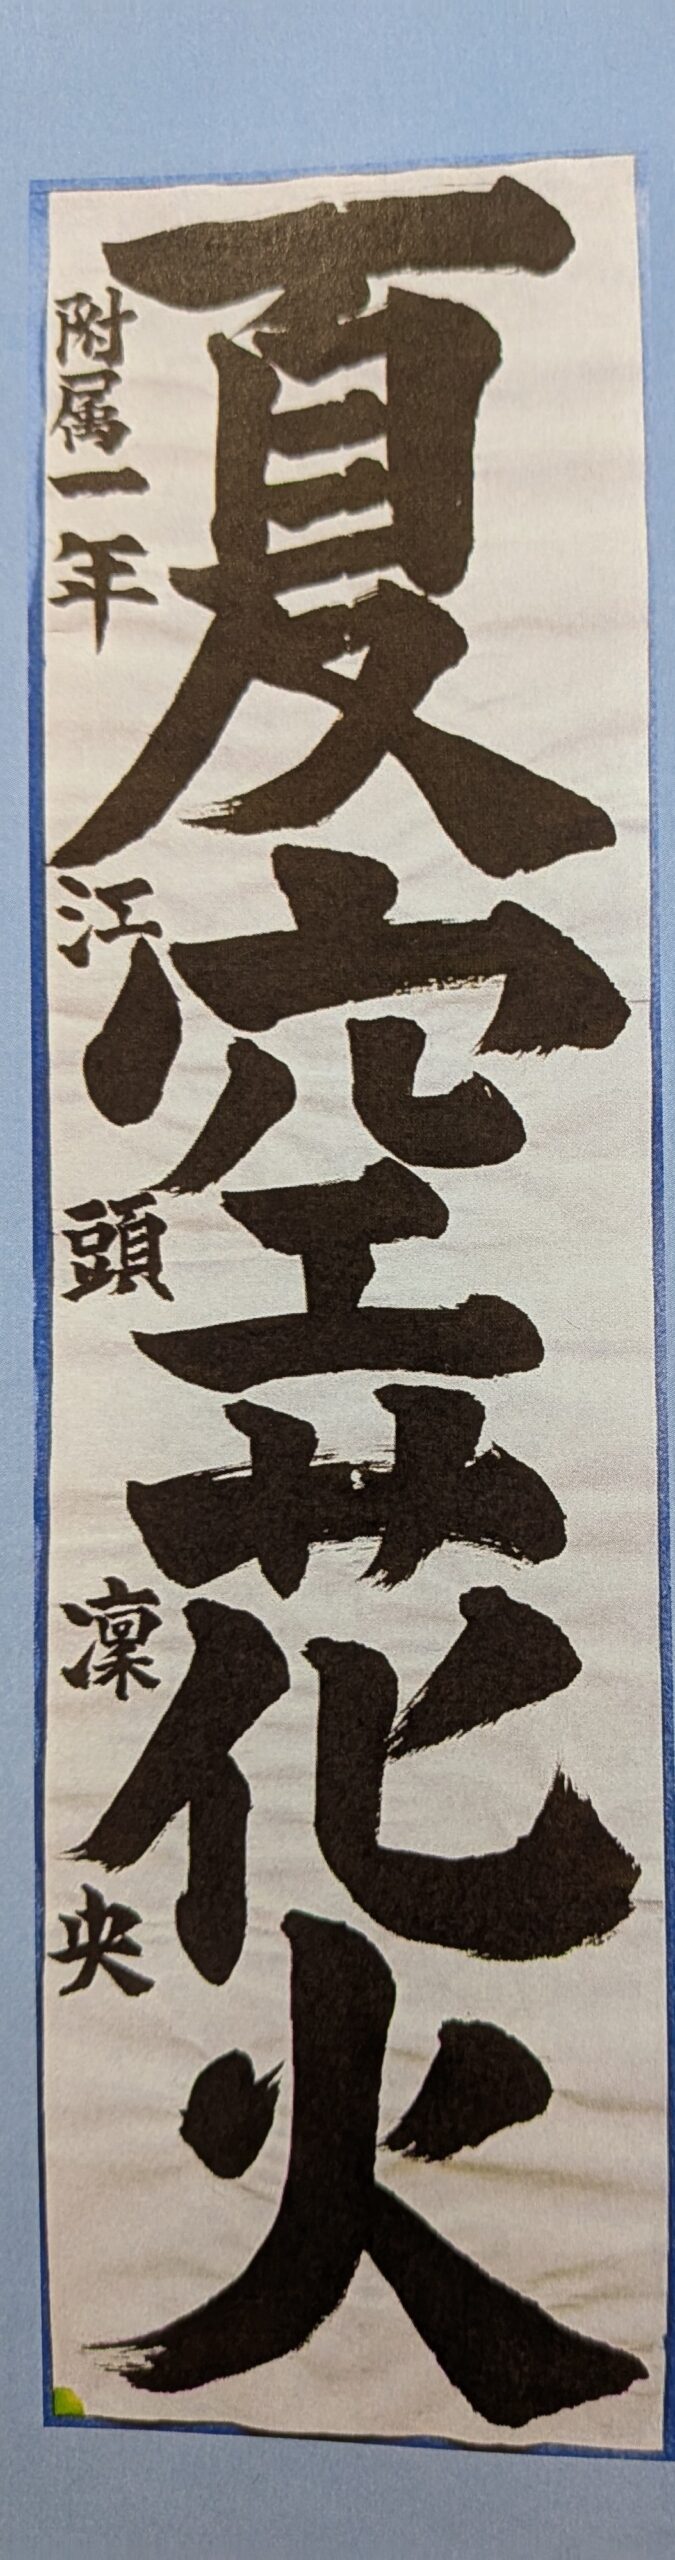 夏空花火
附属一年 江頭凜央